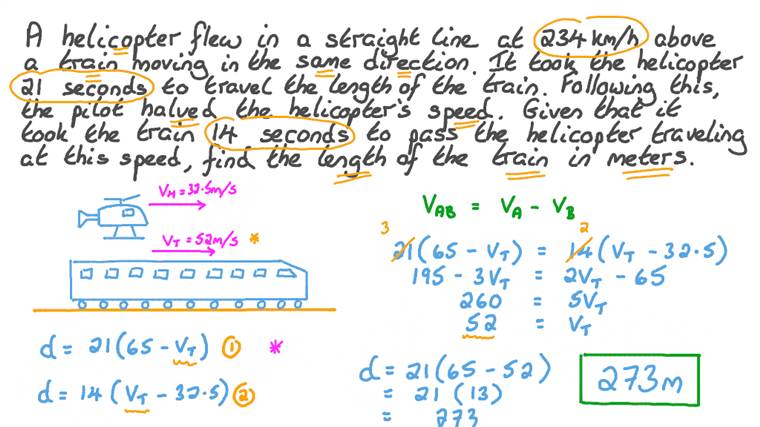 A helicopter flew in a straight line at 234 km/h above
a train moving in the same direction. It took the helicopter
21 seconds to travel the length of the train. Following this,
the pilot halved the helicopter's speed. Given that it
took the train 14 seconds to pass the helicopter traveling
at this speed, find the length of the train in meters.
V_H = 32.5m/s
V_T = 52m/s *
d = 21(65 - V_T) ① *
d = 14(V_T - 32.5) ②
V_AB = V_A - V_B
3 2
21(65 - V_T) = 14(V_T - 32.5)
195 - 3V_T = 2V_T - 65
260 = 5V_T
52 = V_T
d = 21(65 - 52)
= 21(13)
= 273
273m